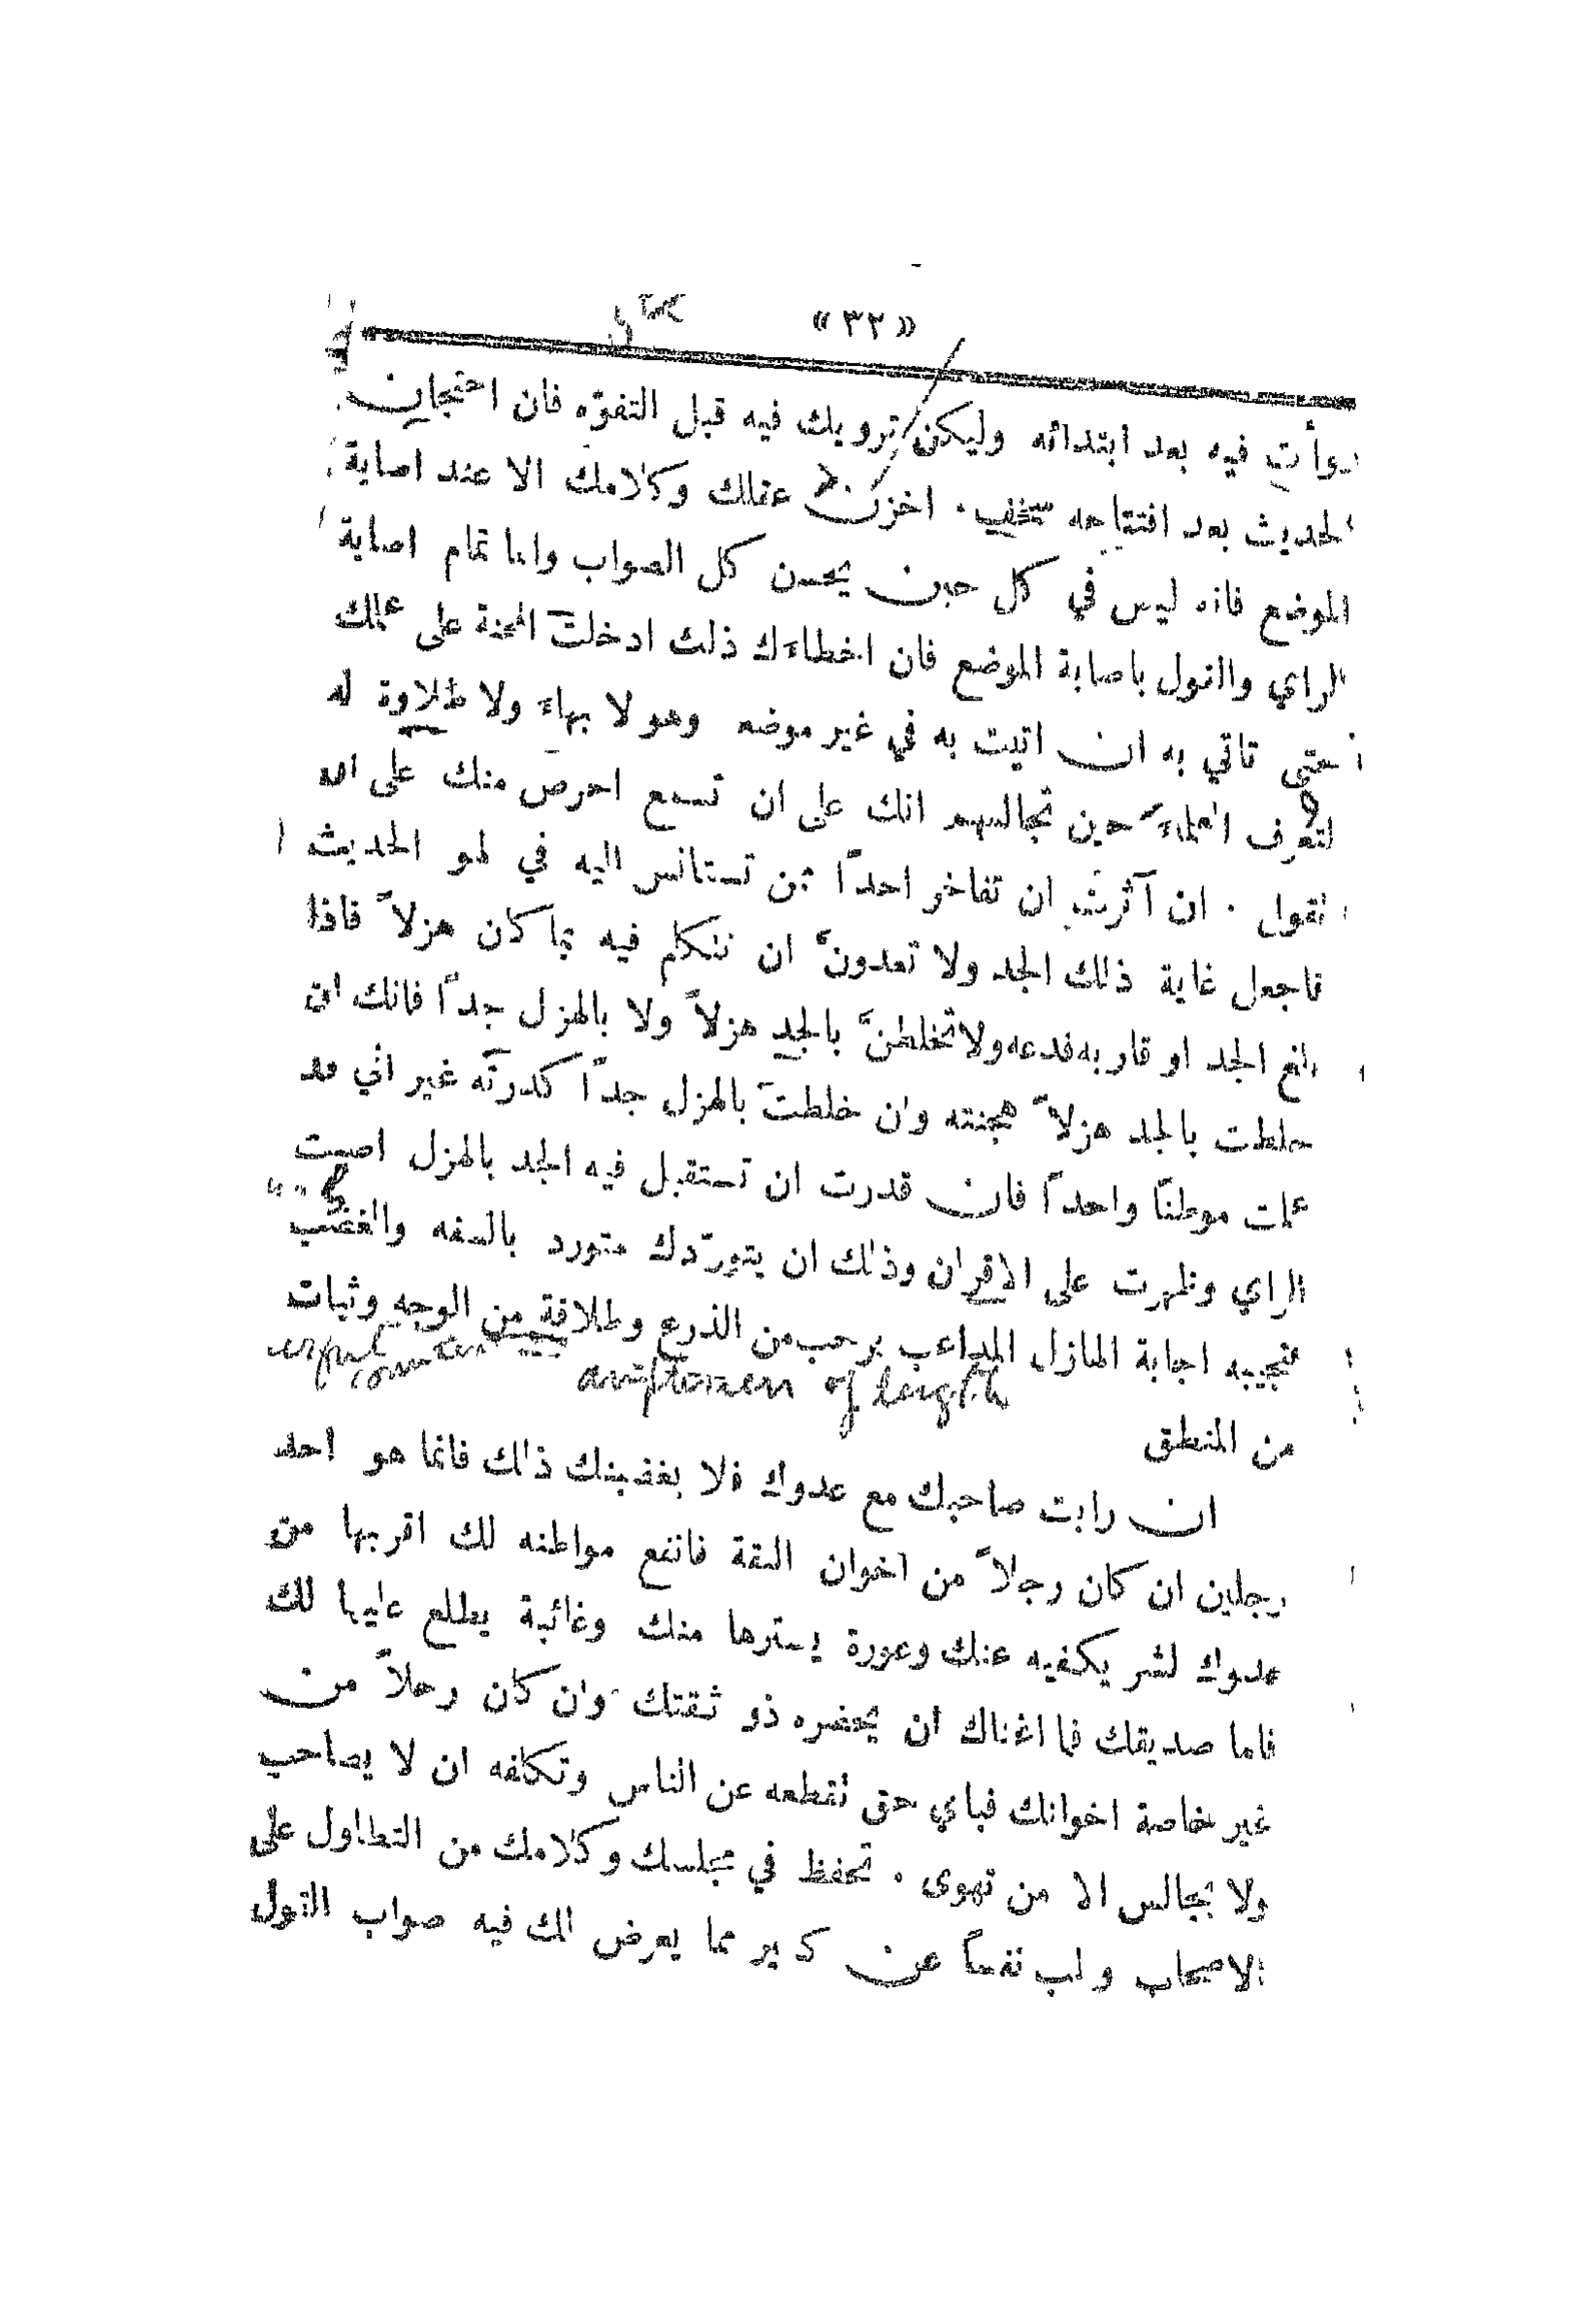 «٣٢»
روأت فيه بعد ابتدائه وليكن ترويك فيه قبل التفوّه فان احتجان
الحديث بعد افتتاحه سخف . اخزن عقلك وكلامك الا عند اصابة
الموضع فانه ليس في كل حين يحسن كل الصواب وانما تمام اصابة
الراي والقول باصابة الموضع فان اخطاءك ذلك ادخلتَ المحنة على عملك
حتى تاتي به ان اتيت به في غير موضعه وهو لا بهاء ولا طلاوة له
لتعرف العلماء حين تجالسهم انك على ان تسمع احرص منك على ان
تقول . ان آثرت ان تفاخر احدًا ممن تستانس اليه في لهو الحديث
فاجعل غاية ذلك الجد ولا تعدونَّ ان نتكلم فيه بما كان هزلاً فاذا
بلغ الجد او قاربه فدعه ولا تخلطنَّ بالجد هزلاً ولا بالهزل جدًا فانك ان
خلطت بالجد هزلاً هجنته وان خلطتَ بالهزل جدًا كدرته غير اني قد
علمت موطنًا واحدًا فان قدرت ان تستقبل فيه الجد بالهزل اصبت
الراي وظهرت على الاقران وذلك ان يتورّدك متورد بالسفه والغضب
فتجيبه اجابة الهازل المداعب برحب من الذرع وطلاقة من الوجه وثبات
of length
من المنطق
ان رايت صاحبك مع عدوك فلا يغضبنك ذلك فانما هو احد
رجلين ان كان رجلاً من اخوان الثقة فانفع مواطنه لك اقربها من
عدوك لشر يكفيه عنك وعورة يسترها منك وغائبة يطلع عليها لك
فاما صديقك فما اغناك ان يحضره ذو ثقتك وان كان رجلاً من
غير خاصة اخوانك فباي حق تقطعه عن الناس وتكلفه ان لا يصاحب
ولا يجالس الا من تهوى . تحفظ في مجلسك وكلامك من التطاول على
الاصحاب وطب نفسًا عن كثير مما يعرض لك فيه صواب القول